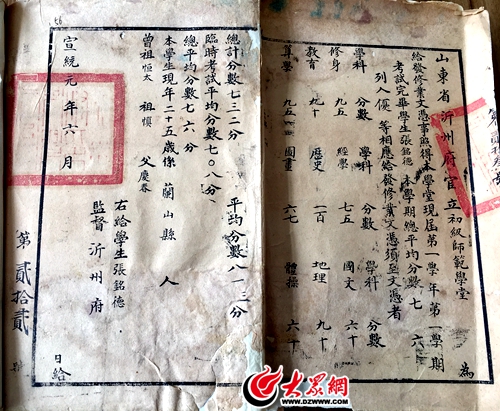 山東省沂州府官立初級師範學堂 為
給發修業文憑事照得本學堂現屆第一學年第一學期
考試完畢學生張銘德本學期總平均分數七六
列入優等相應給發修業文憑須至文憑者
學科 分數 學科 分數 學科 分數
修身 九五 經學 七五 國文 六十
教育 九十 歷史 一百 地理 九十
算學 九五 圖畫 六七 體操 六十
總計分數七三二分 平均分數八一·三分
臨時考試平均分數七〇·八分
總平均分數七六分
本學生現年二十五歲係蘭山縣人
曾祖恒太 祖慎 父慶春
右給學生張銘德
監督沂州府
宣統元年六月 日給
第貳拾貳號
大众网
WWW.DZWWW.COM